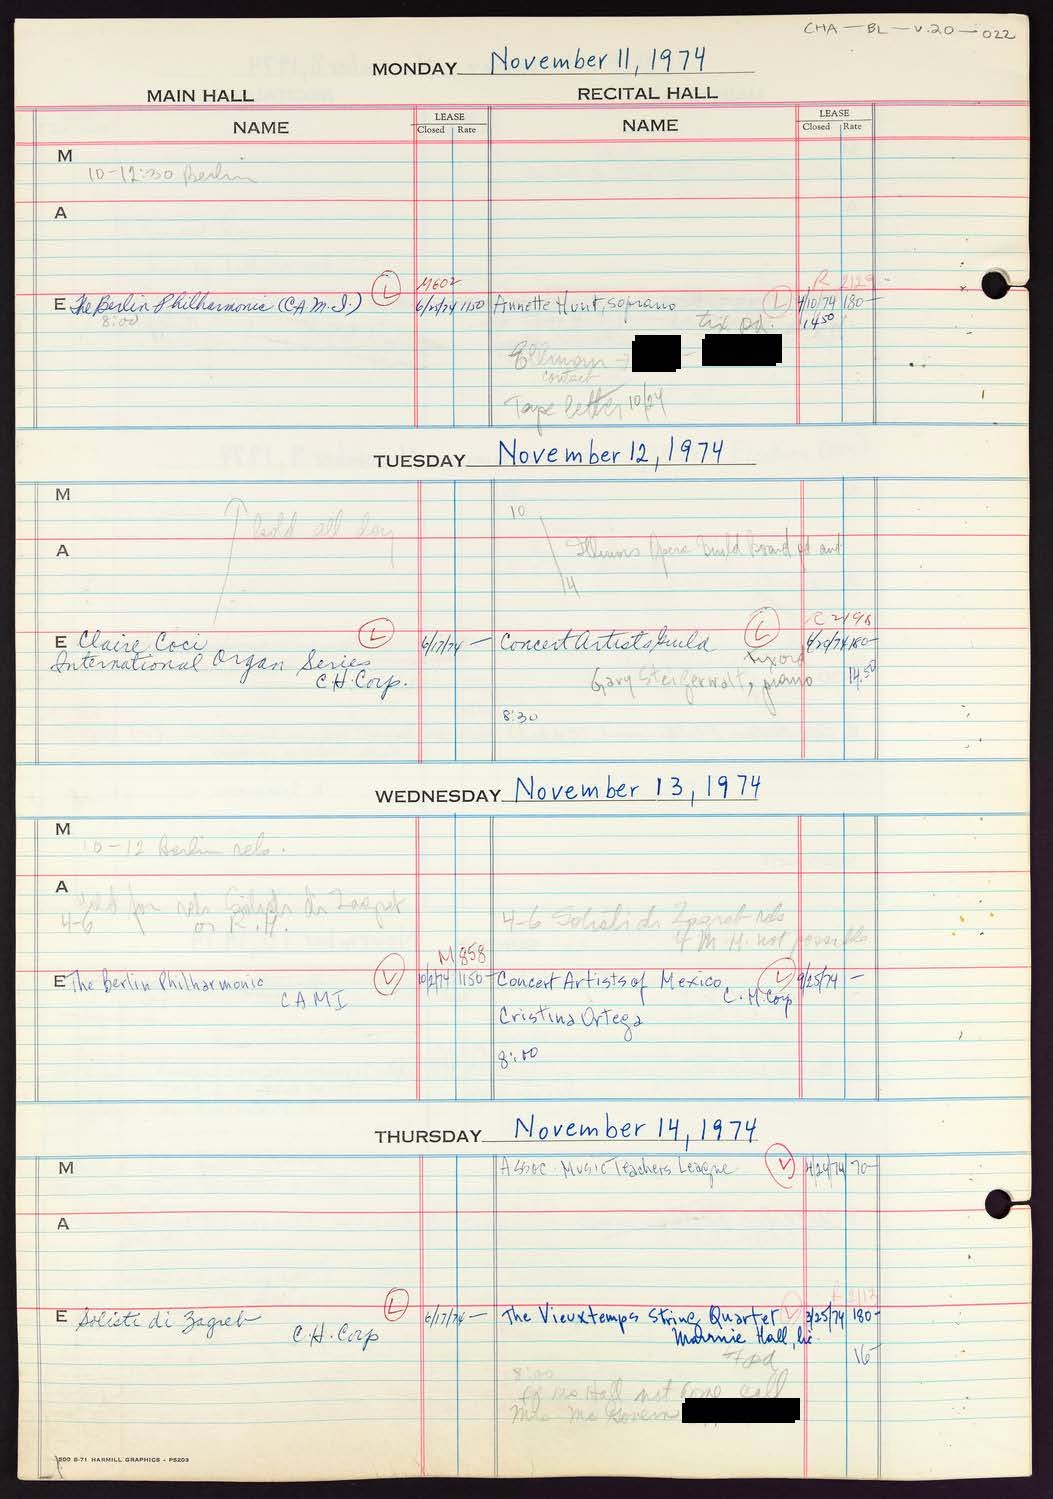 CHA-BL-V.20-022
MONDAY November 11, 1974
MAIN HALL
RECITAL HALL
NAME
LEASE
Closed Rate
NAME
LEASE
Closed Rate
M
10-12:30 Berlin
A
M602
R 2129
E The Berlin Philharmonic (CAMI) L 6/25/74 1150
8:00
Annette Hunt, soprano L 7/10/74 180-
tix pd. 1450
contact
Tape letter 10/24
TUESDAY November 12, 1974
M
hold all day
10
A
Illinois Opera Guild Board and
14
C 2196
E Claire Coci L 6/17/74 -
International Organ Series
C.H.Corp.
Concert Artists Guild L 6/20/74 180-
tix ord
Gary Steigerwalt, piano 14.50
8:30
WEDNESDAY November 13, 1974
M
10-12 Berlin rehs.
A
hold for reh Solisti di Zagreb
4-6 or R.H.
4-6 Solisti di Zagreb reh
if M.H. not possible
M 858
E The Berlin Philharmonic L 10/2/74 1150-
CAMI
Concert Artists of Mexico L 9/25/74 -
C.H.Corp
Cristina Ortega
8:00
THURSDAY November 14, 1974
M
Assoc. Music Teachers League L 4/24/74 70-
A
E Solisti di Zagreb L 6/17/74 -
C.H.Corp
The Vieuxtemps String Quartet L 3/25/74 180-
Hall, Inc.
pd 16-
8:00
if Hall not done call
Mrs. McGovern
500 8-71 HARMILL GRAPHICS - P5203